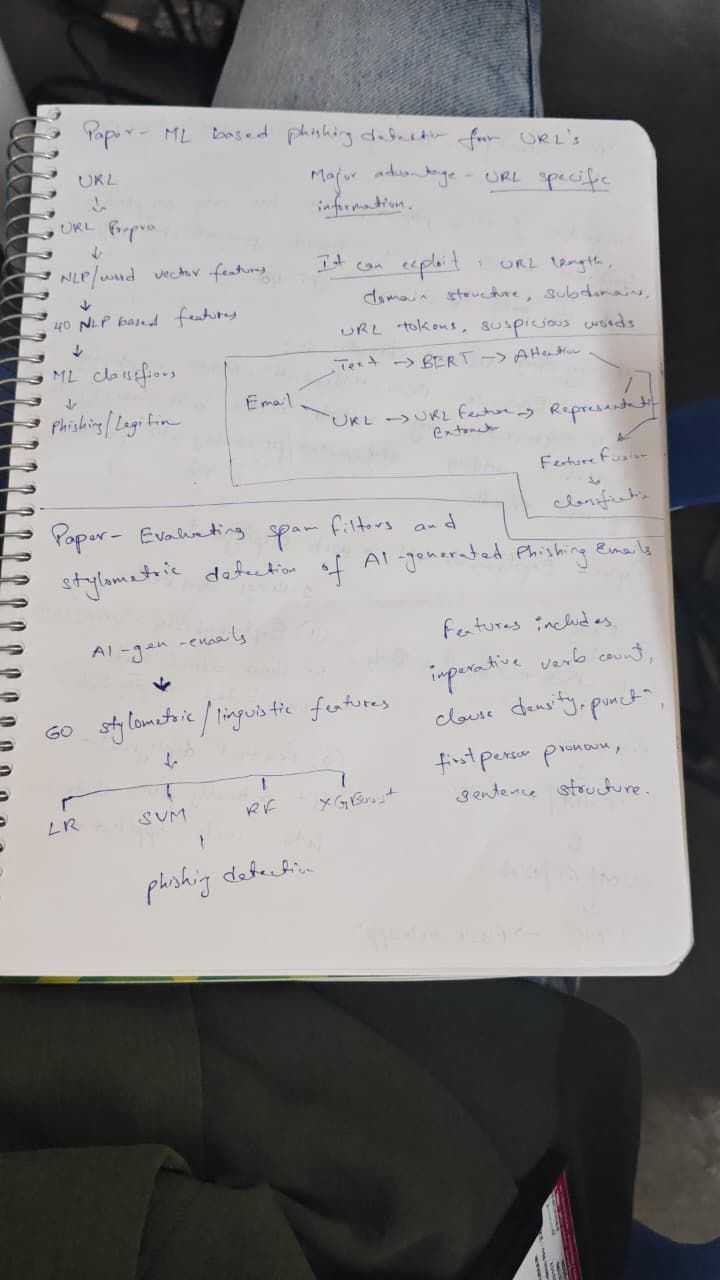 Paper - ML based phishing detection from URL's
URL
↓
URL Prepro
↓
NLP/word vector features
↓
40 NLP based features
↓
ML classifiers
↓
Phishing/Legitim
Major advantage - URL specific
information.
It can exploit : URL length,
domain structure, subdomains,
URL tokens, suspicious words
Email
Text → BERT → Attention
URL → URL Feature → Representati
Extractor
Feature Fusion
↓
classificati
Paper - Evaluating spam filters and
stylometric detection of AI-generated Phishing Emails
AI-gen-emails
↓
60 stylometric/linguistic features
↓
LR SVM RF XGBoost
phishing detection
Features includes
imperative verb count,
clause density, punctn,
first person pronoun,
sentence structure.